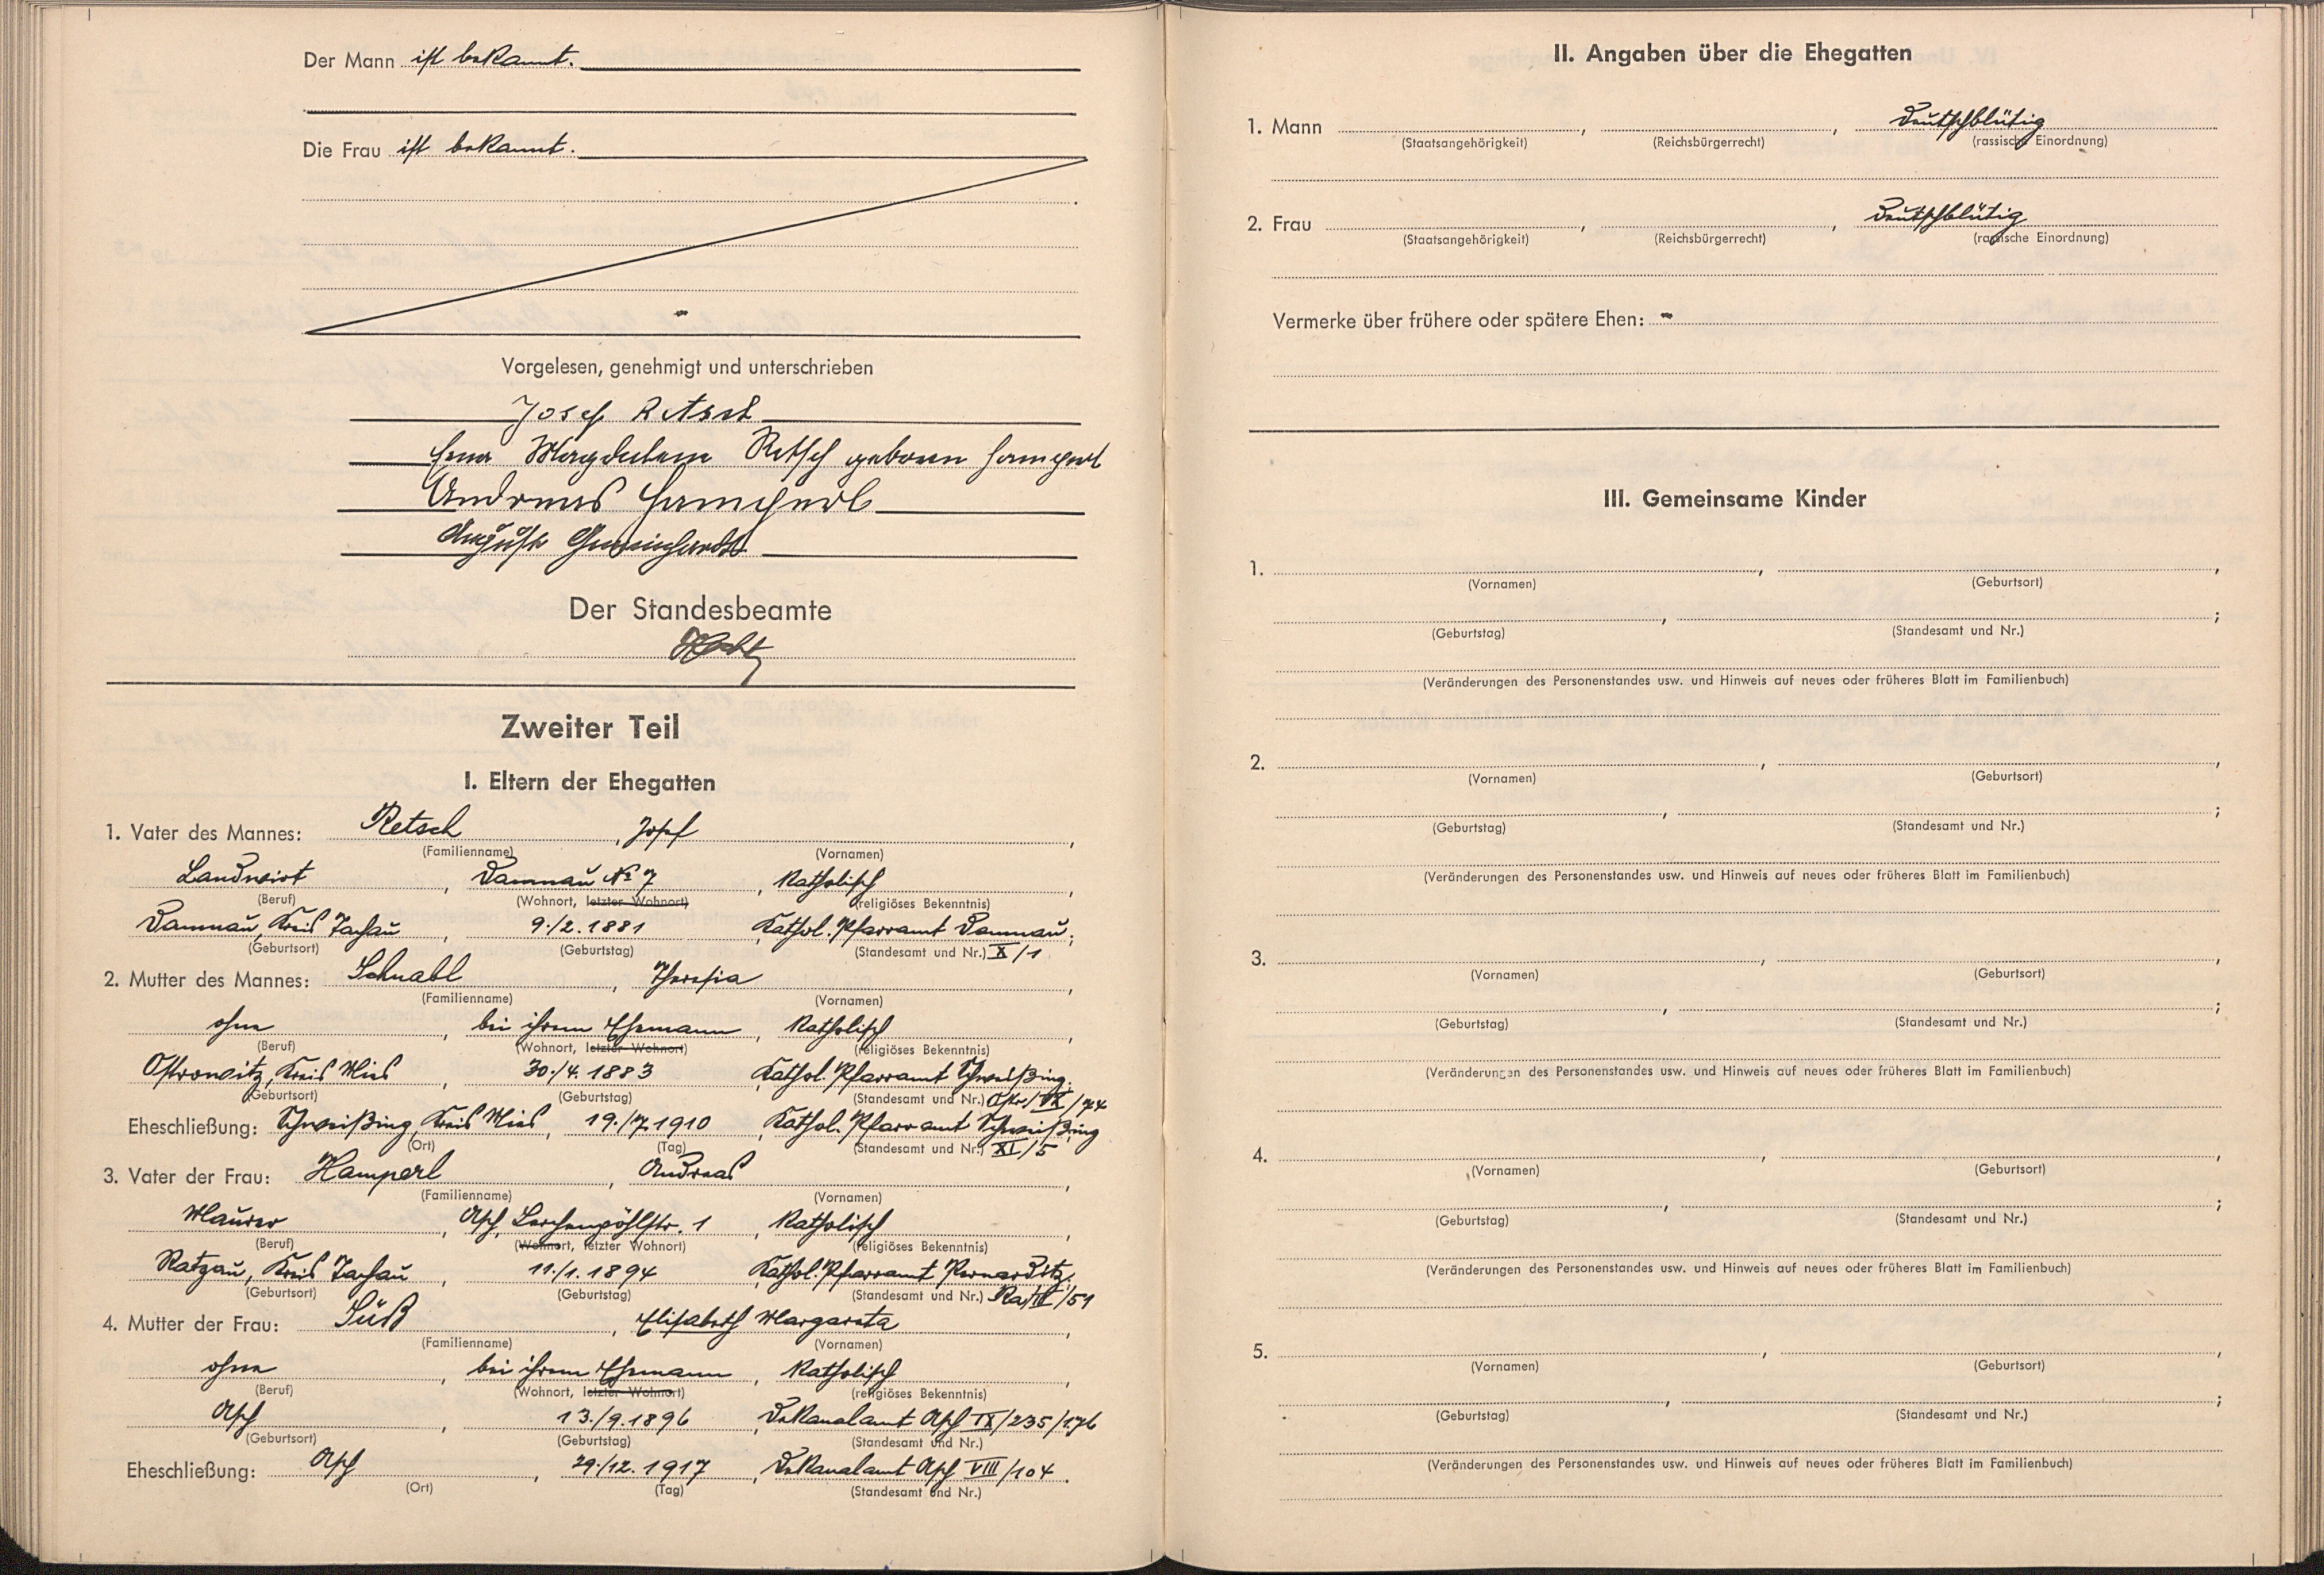 Der Mann ist bekannt.
Die Frau ist bekannt.
Vorgelesen, genehmigt und unterschrieben
Josef Retsch
Erna Magdalena Retsch geboren Hamperl
Andreas Hamperl
August
Der Standesbeamte
Zweiter Teil
I. Eltern der Ehegatten
1. Vater des Mannes: Retsch, Josef,
(Familienname) (Vornamen)
Landwirt, Damnau № 7, katholisch,
(Beruf) (Wohnort, letzter Wohnort) (religiöses Bekenntnis)
Damnau, Kreis Tachau, 9./2. 1881 Kathol. Pfarramt Damnau;
(Geburtsort) (Geburtstag) (Standesamt und Nr.) X/1
2. Mutter des Mannes: Schnabl, Theresia,
(Familienname) (Vornamen)
ohne, bei ihrem Ehemann, katholisch,
(Beruf) (Wohnort, letzter Wohnort) (religiöses Bekenntnis)
Ostrowitz, Kreis Mies, 30./4. 1883 Kathol. Pfarramt Schweißing.
(Geburtsort) (Geburtstag) (Standesamt und Nr.)
Eheschließung: Schweißing, Kreis Mies, 19./7. 1910, Kathol. Pfarramt Schweißing
(Ort) (Tag) (Standesamt und Nr.) XI/5
3. Vater der Frau: Hamperl, Andreas,
(Familienname) (Vornamen)
Maurer, Asch, Lerchenpöhlstr. 1, katholisch,
(Beruf) (Wohnort, letzter Wohnort) (religiöses Bekenntnis)
Ratzau, Kreis Tachau, 11./1. 1894 Kathol. Pfarramt Pernarditz;
(Geburtsort) (Geburtstag) (Standesamt und Nr.)
4. Mutter der Frau: Süß, Elisabeth Margareta,
(Familienname) (Vornamen)
ohne, bei ihrem Ehemann, katholisch,
(Beruf) (Wohnort, letzter Wohnort) (religiöses Bekenntnis)
Asch, 13./9. 1896, Dekanalamt Asch IX/235/176
(Geburtsort) (Geburtstag) (Standesamt und Nr.)
Eheschließung: Asch, 29./12. 1917, Dekanalamt Asch VIII/104.
(Ort) (Tag) (Standesamt und Nr.)
II. Angaben über die Ehegatten
1. Mann , , Deutschblütig
(Staatsangehörigkeit) (Reichsbürgerrecht) (rassische Einordnung)
2. Frau , , Deutschblütig
(Staatsangehörigkeit) (Reichsbürgerrecht) (rassische Einordnung)
Vermerke über frühere oder spätere Ehen: -
III. Gemeinsame Kinder
1. , ,
(Vornamen) (Geburtsort)
, ;
(Geburtstag) (Standesamt und Nr.)
(Veränderungen des Personenstandes usw. und Hinweis auf neues oder früheres Blatt im Familienbuch)
2. , ,
(Vornamen) (Geburtsort)
, ;
(Geburtstag) (Standesamt und Nr.)
(Veränderungen des Personenstandes usw. und Hinweis auf neues oder früheres Blatt im Familienbuch)
3. , ,
(Vornamen) (Geburtsort)
, ;
(Geburtstag) (Standesamt und Nr.)
(Veränderungen des Personenstandes usw. und Hinweis auf neues oder früheres Blatt im Familienbuch)
4. , ,
(Vornamen) (Geburtsort)
, ;
(Geburtstag) (Standesamt und Nr.)
(Veränderungen des Personenstandes usw. und Hinweis auf neues oder früheres Blatt im Familienbuch)
5. , ,
(Vornamen) (Geburtsort)
, ;
(Geburtstag) (Standesamt und Nr.)
(Veränderungen des Personenstandes usw. und Hinweis auf neues oder früheres Blatt im Familienbuch)